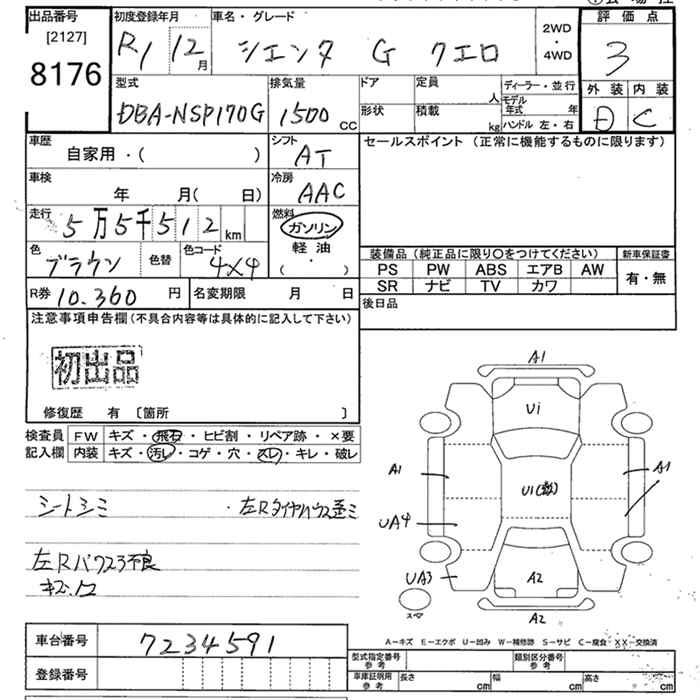 出品番号 初度登録年月 車名・グレード 2WD・4WD 評価点
[2127]
8176 R1 12月 シエンタ G クエロ 3
型式 排気量 ドア 定員 人 ディーラー・並行 外装 内装
DBA-NSP170G 1500 CC 形状 積載 kg モデル年式 年 D C
ハンドル 左・右
車歴 シフト セールスポイント (正常に機能するものに限ります)
自家用・( ) AT
車検 冷房
年 月( 日) AAC
走行 燃料
5万5千512km ガソリン
色 色替 色コード 軽油
ブラウン 4X4 ( ・ )
装備品 (純正品に限り○をつけてください) 新車保証書
PS PW ABS エアB AW 有・無
SR ナビ TV カワ
R券 10.360 円 名変期限 月 日 後日品
注意事項申告欄 (不具合内容等は具体的に記入して下さい)
初出品
修復歴 有 〔箇所 〕
検査員 FW キズ・飛石・ヒビ割・リペア跡・×要
記入欄 内装 キズ・汚レ・コゲ・穴・スレ・キレ・破レ
シートシミ
・左Rタイヤハウス
左Rパワスラ不良
A1
U1
A1
A1
U1
UA4
UA3
A2
A2
A-キズ E-エクボ U-凹み W-補修跡 S-サビ C-腐食 XX-交換済
車台番号 7234591
登録番号
型式指定番号 参考 類別区分番号 参考
車庫証明用 参考 長さ cm 幅 cm 高さ cm